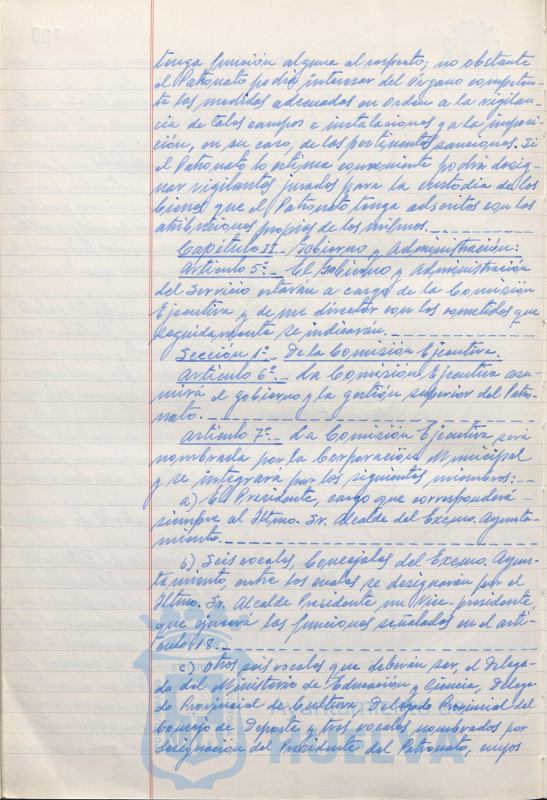 tenga función alguna al respecto; no obstante
el Patronato podrá interesar del órgano competen-
te las medidas adecuadas en orden a la vigilan-
cia de tales campos e instalaciones y a la imposi-
ción, en su caso, de las pertinentes sanciones. Si
el Patronato lo estima conveniente podrá desig-
nar vigilantes jurados para la custodia de los
bienes que el Patronato tenga adscritos con las
atribuciones propias de los mismos.
Capítulo II.- Gobierno y Administración:
Artículo 5º.- El Gobierno y Administración
del Servicio estarán a cargo de la Comisión
Ejecutiva y de un director con los cometidos que
seguidamente se indicarán.
Sección 1ª.- De la Comisión Ejecutiva.
Artículo 6º.- La Comisión Ejecutiva asu-
mirá el gobierno y la gestión superior del Patro-
nato.
Artículo 7º.- La Comisión Ejecutiva será
nombrada por la Corporación Municipal
y se integrará por los siguientes miembros:
a) El Presidente, cargo que corresponderá
siempre al Iltmo. Sr. Alcalde del Excmo. Ayunta-
miento.
b) Seis vocales, Concejales del Excmo. Ayun-
tamiento, entre los cuales se designarán por el
Iltmo. Sr. Alcalde Presidente un Vice-presidente,
que ejercerá las funciones señaladas en el artí-
culo 18.
c) Otros seis vocales que deberán ser, el Delega-
do del Ministerio de Educación y Ciencia, Delega-
do Provincial de Cultura, Delegado Provincial del
Consejo de Deporte y tres vocales nombrados por
designación del Presidente del Patronato, cuyos
HUELVA